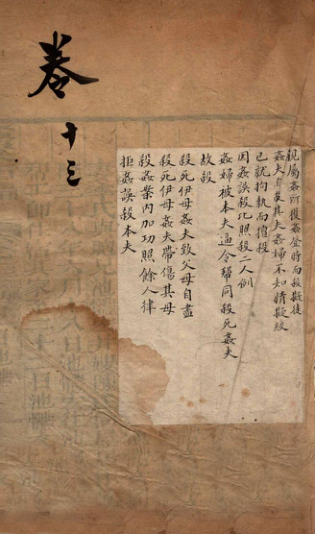 卷十三
親屬姦所獲姦登時而殺擬徒
姦夫自殺其夫姦婦不知情擬絞
已就拘執而擅殺
因姦誤殺比照殺二人例
姦婦被本夫逼令幫同殺死姦夫
故殺
殺死伊母姦夫致父母自盡
殺死伊母姦夫帶傷其母
殺姦案內加功照餘人律
拒姦誤殺本夫